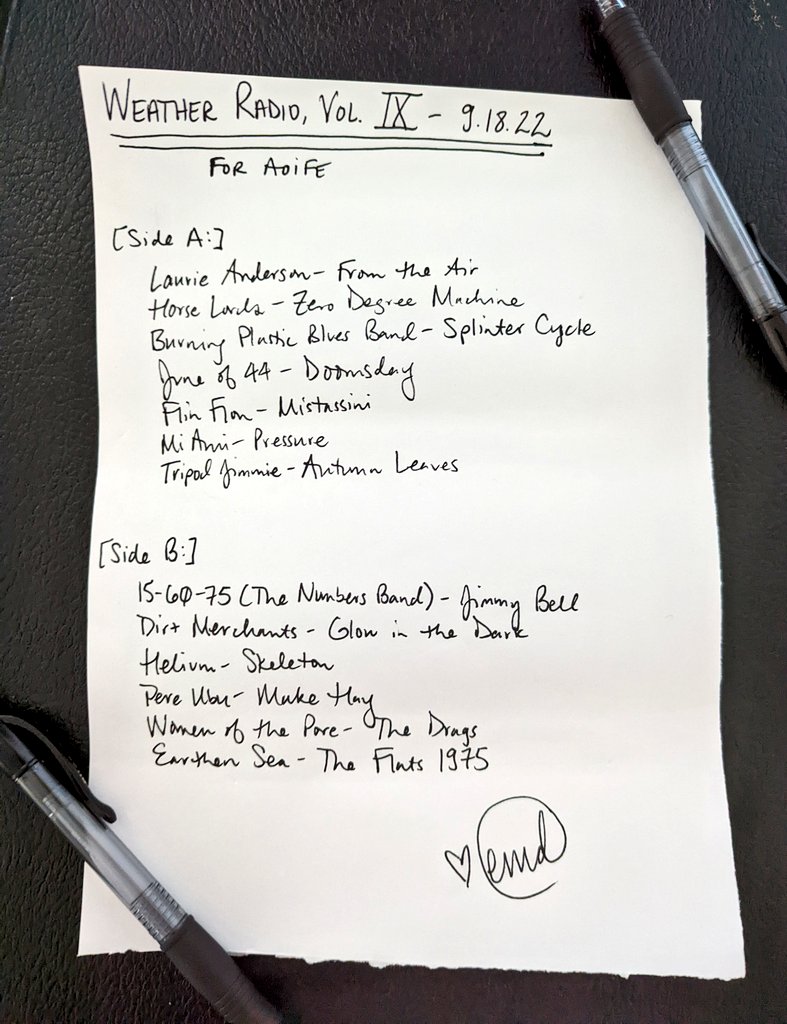 WEATHER RADIO, VOL. IX - 9.18.22
FOR AOIFE
[Side A:]
Laurie Anderson - From the Air
Horse Lords - Zero Degree Machine
Burning Plastic Blues Band - Splinter Cycle
June of 44 - Doomsday
Flin Flon - Mistassini
Mi Ami - Pressure
Tripod Jimmie - Autumn Leaves
[Side B:]
15-60-75 (The Numbers Band) - Jimmy Bell
Dirt Merchants - Glow in the Dark
Helium - Skeleton
Pere Ubu - Make Hay
Women of the Pore - The Drags
Earthen Sea - The Flats 1975
♡ emd